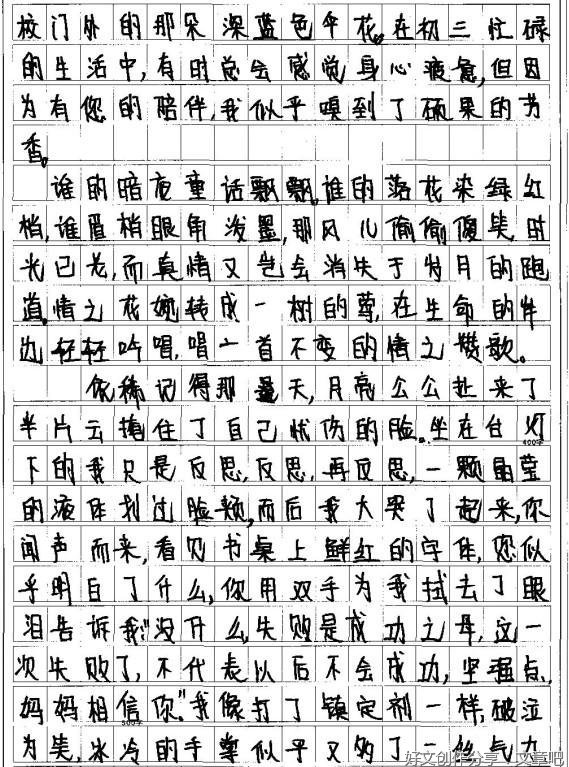 校门外的那朵深蓝色伞花。在初三忙碌
的生活中,有时总会感觉身心疲惫,但因
为有您的陪伴,我似乎嗅到了硕果的芳
香。
谁的暗夜童话飘飘。谁的落花染绿红
梢,谁眉梢眼角泼墨,那风儿偷偷傻笑时
光已老,而真情又岂会消失于岁月的跑
道。情之花婉转成一树的莺,在生命的岸
边轻轻吟唱,唱一首不变的情之赞歌。
依稀记得那一天,月亮公公扯来了
半片云掩住了自己忧伤的脸。坐在台灯
400字
下的我只是反思,反思,再反思,一颗晶莹
的液体划过脸颊,而后我大哭了起来,你
闻声而来,看见书桌上鲜红的字体,您似
乎明白了什么,你用双手为我拭去了眼
泪告诉我:"没什么,失败是成功之母,这一
次失败了,不代表以后不会成功,坚强点,
妈妈相信你。"我像打了镇定剂一样,破泣
500字
为笑,冰冷的手掌似乎又多了一丝气力
好文创作分享,文章吧